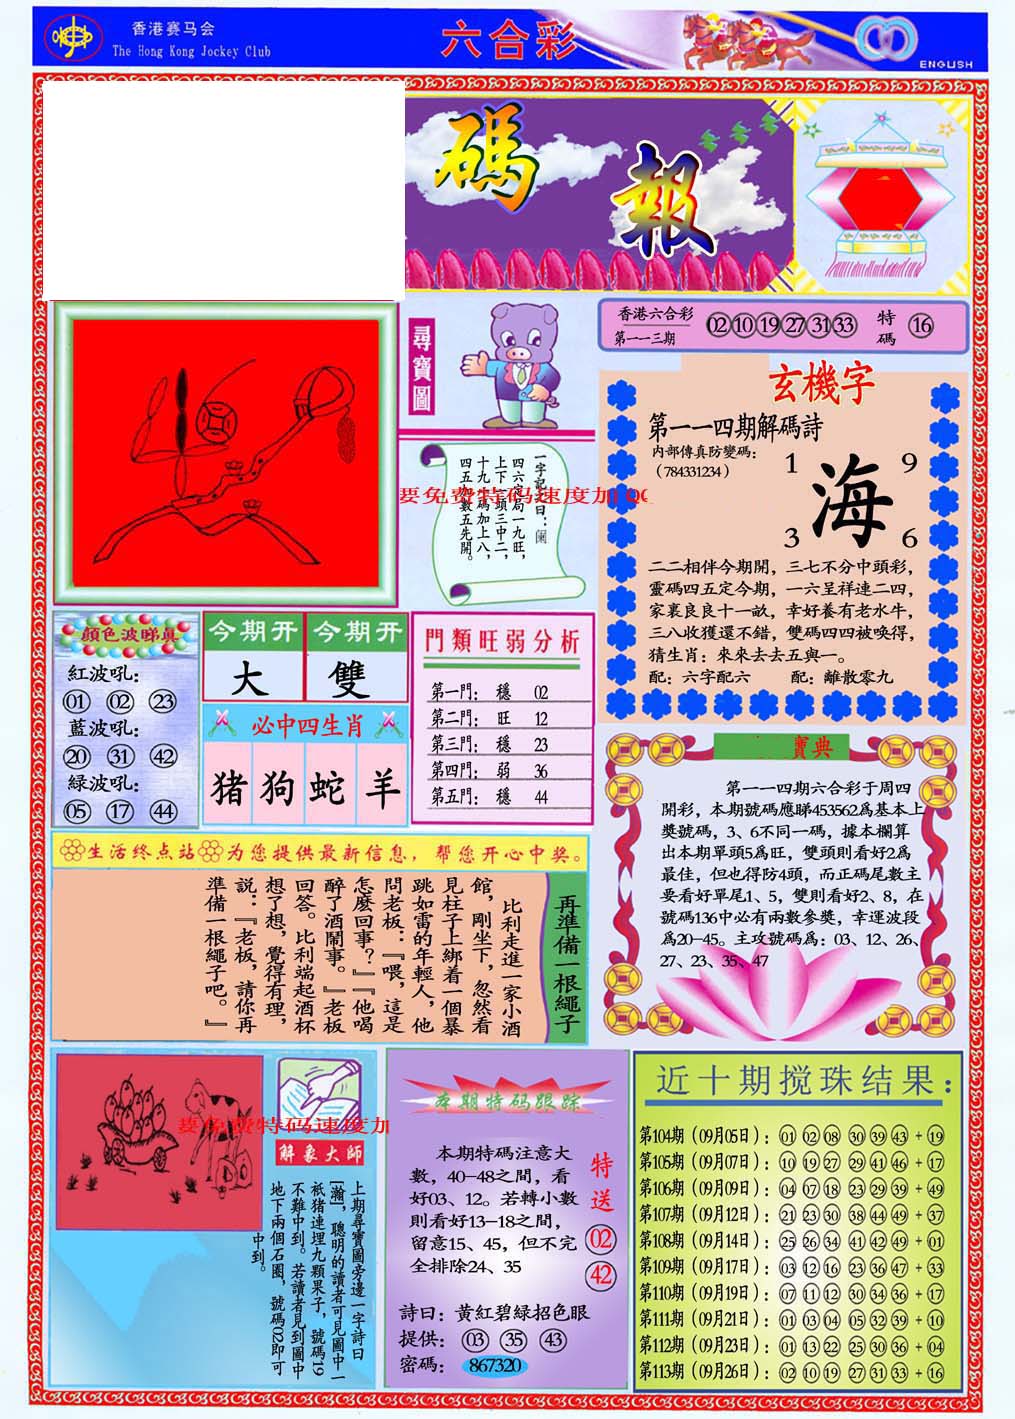 香港赛马会
The Hong Kong Jockey Club
六合彩
ENGLISH
碼報
尋寶圖
香港六合彩
第一一三期
02 10 19 27 31 33
特碼
16
一字記之曰：闌
四六定局一九旺，
十九
四五
要免费特码速度加
玄機字
第一一四期解碼詩
内部傳真防變碼：
（784331234）
1 9
海
3 6
二二相伴今期開，三七不分中頭彩，
靈碼四五定今期，一六呈祥連二四，
家裏良良十一畝，幸好養有老水牛，
三八收獲還不錯，雙碼四四被唤得，
猜生肖：來來去去五與一。
配：六字配六 配：離散零九
顔色波睇真
紅波吼：
01 02 23
藍波吼：
20 31 42
緑波吼：
05 17 44
今期开 今期开
大 雙
必中四生肖
猪 狗 蛇 羊
門類旺弱分析
第一門： 穩 02
第二門： 旺 12
第三門： 穩 23
第四門： 弱 36
第五門： 穩 44
寶典
第一一四期六合彩于周四
開彩，本期號碼應睇453562爲基本上
獎號碼，3、6不同一碼，據本欄算
出本期單頭5爲旺，雙頭則看好2爲
最佳，但也得防4頭，而正碼尾數主
要看好單尾1、5，雙則看好2、8，在
號碼136中必有兩數參獎，幸運波段
爲20-45。主攻號碼爲：03、12、26、
27、23、35、47
生活终点站 为您提供最新信息，帮您开心中奖。
再準備一根繩子
比利走進一家小酒
館，剛坐下，忽然看
見柱子上綁着一個暴
跳如雷的年輕人，他
問老板：『喂，這是
怎麼回事？』『他喝
醉了酒鬧事。』老板
回答。比利端起酒杯
想了想，覺得有理，
説：『老板，請你再
準備一根繩子吧。』
要免费特码速度加
解象大師
上期尋寶圖旁邊一字詩曰
[瀚]，聰明的讀者可見圖中一
祇猪連埋九顆果子，號碼19
不難中到。若讀者見到圖中
地下兩個石圈，號碼02即可
中到。
本期特码跟踪
本期特码注意大
數，40-48之間，看
好03、12。若轉小數
則看好13-18之間，
留意15、45，但不完
全排除24、35
特送
02
42
詩曰：黄紅碧緑招色眼
提供： 03 35 43
密碼： 867320
近十期搅珠结果：
第104期（09月05日）：01 02 08 30 39 43 + 19
第105期（09月07日）：10 19 27 29 41 46 + 17
第106期（09月09日）：04 07 18 23 29 39 + 49
第107期（09月12日）：21 23 30 38 44 49 + 37
第108期（09月14日）：25 26 34 41 42 49 + 01
第109期（09月17日）：03 12 16 23 36 47 + 33
第110期（09月19日）：07 11 12 30 34 36 + 17
第111期（09月21日）：01 03 04 05 32 39 + 10
第112期（09月23日）：01 13 22 25 30 36 + 04
第113期（09月26日）：02 10 19 27 31 33 + 16